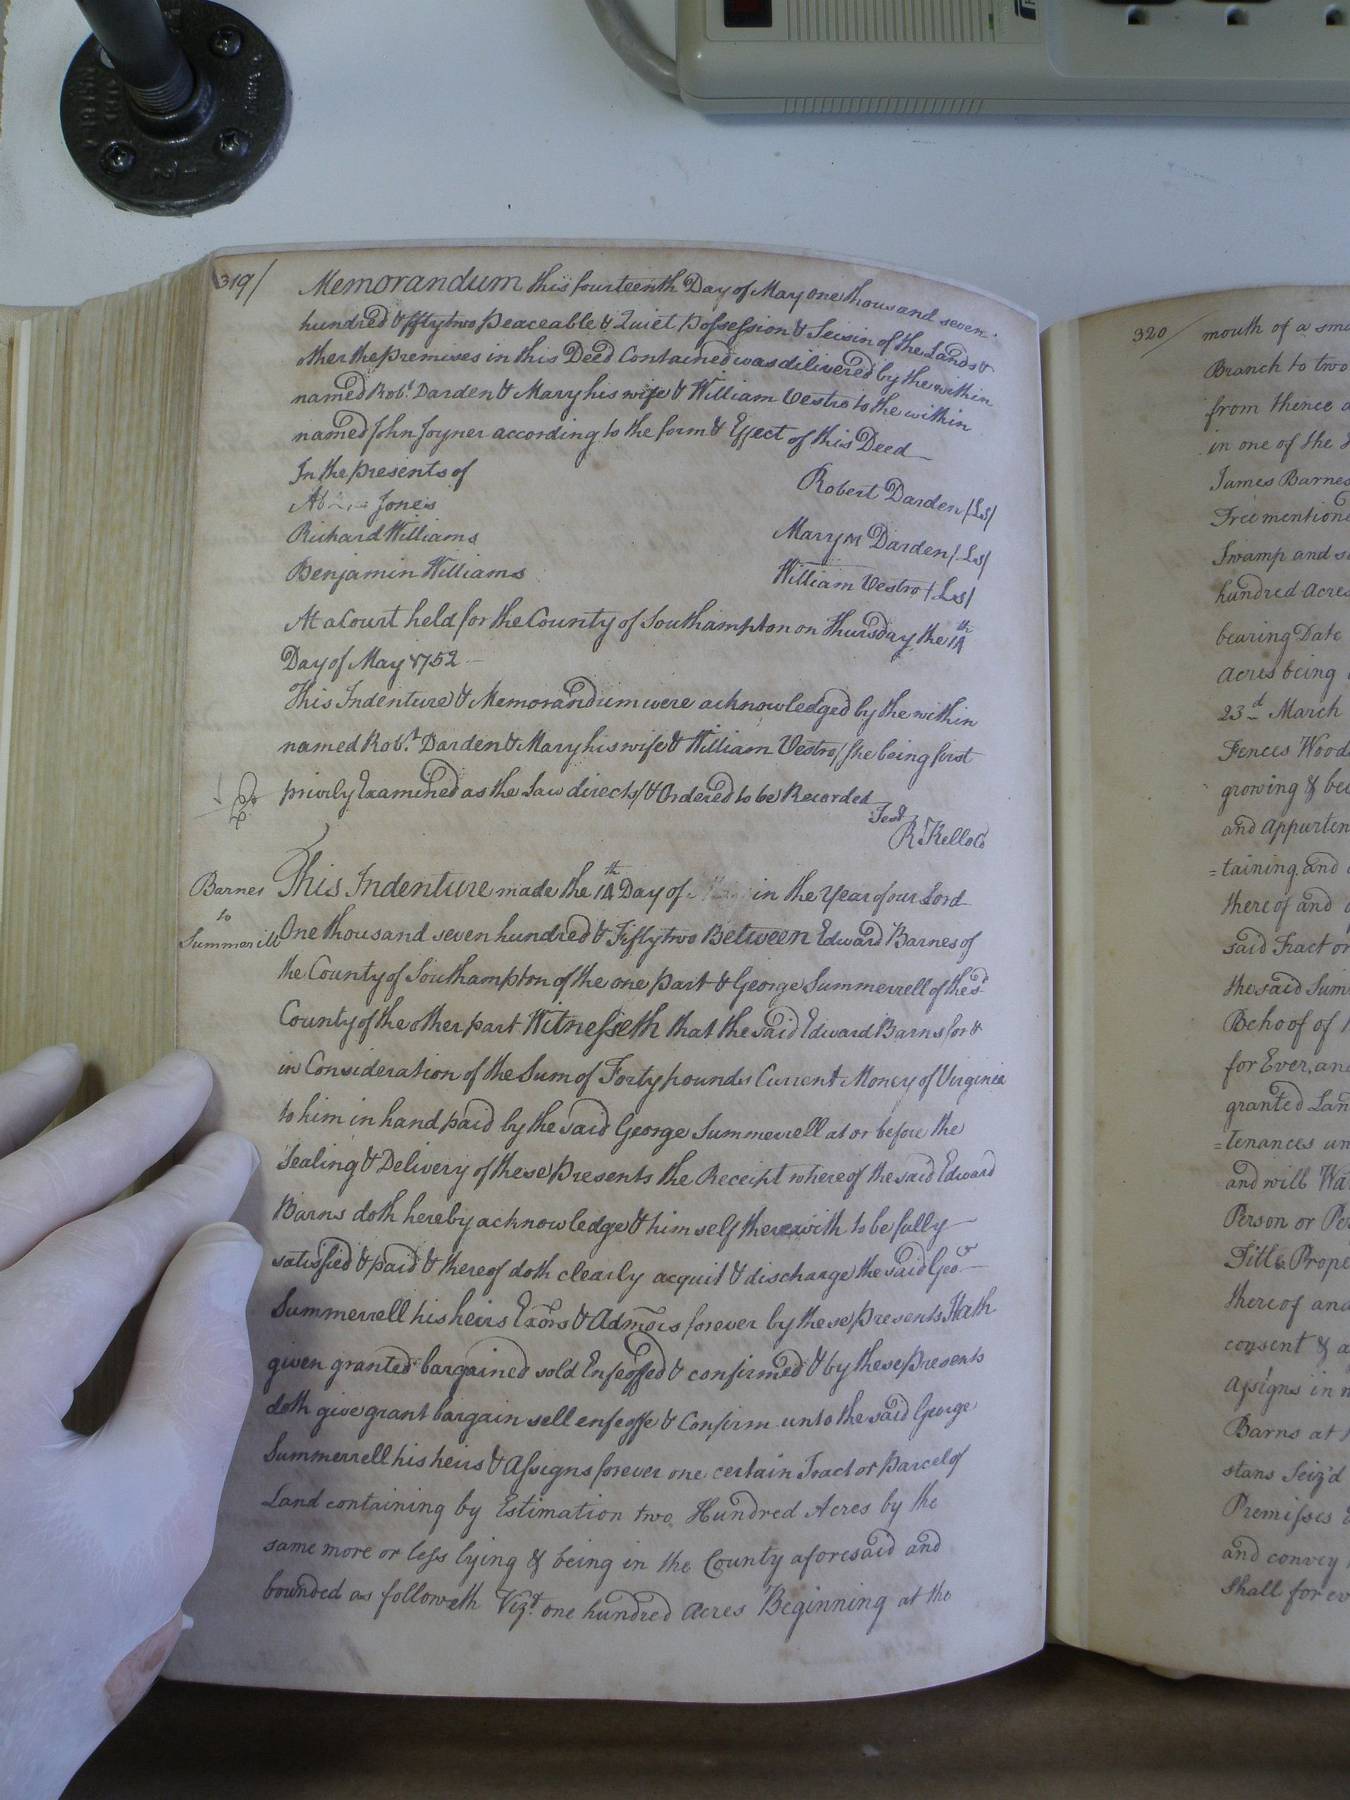 319/
Memorandum this fourteenth Day of May one thousand seven
hundred & fifty two Peaceable & Quiet Possession & Seisin of the Lands &
other the premises in this Deed Contained was dilivered by the within
named Robt. Darden & Mary his wife & William Vestro to the within
named John Joyner according to the form & Effect of this Deed
In the presents of
Robert Darden /Ls/
Jones
Richard Williams
Mary M Darden /Ls/
Benjamin Williams
William Vestro /Ls/
At a Court held for the County of Southampton on Thursday the 14th
Day of May 1752
This Indenture & Memorandum were acknowledged by the within
named Robt. Darden & Mary his wife & William Vestro / she being first
privily Examined as the Law directs / & Ordered to be Recorded
Test
R. Kello Cl
Barnes
to
Summerill
This Indenture made the 14th Day of in the Year of our Lord
One thousand seven hundred & Fifty two Between Edward Barnes of
the County of Southampton of the one part & George Summerrell of the sd.
County of the other part Witnesseth that the said Edward Barns for &
in Consideration of the Sum of Forty pounds Current Money of Virginia
to him in hand paid by the said George Summerrell at or before the
Sealing & Delivery of these presents the Receipt whereof the said Edward
Barns doth hereby acknowledge & himself therewith to be fully
satisfied & paid & thereof doth clearly acquit & discharge the said Geo
Summerrell his heirs Exors & Admors forever by these presents Hath
given granted bargained sold Enfeoffed & confirmed & by these presents
doth give grant bargain sell enfeoffe & Confirm unto the said George
Summerrell his heirs & Assigns forever one certain Tract or Parcel of
Land containing by Estimation two Hundred Acres by the
same more or less lying & being in the County aforesaid and
bounded as followeth Vizt. one hundred Acres Beginning at the
320/
mouth of a
Branch to two
from thence
in one of the
James Barnes
Tree
Swamp and
hundred Acres
bearing Date
Acres being
23d March
Fences
growing &
and
=taining and
thereof and
said Tract or
the said
Behoof of
for Ever, and
granted
=tenances
and will
Person or
Title
thereof and
consent &
Assigns in
Barns at
stans Seiz'd
Premisses
and convey
Shall for